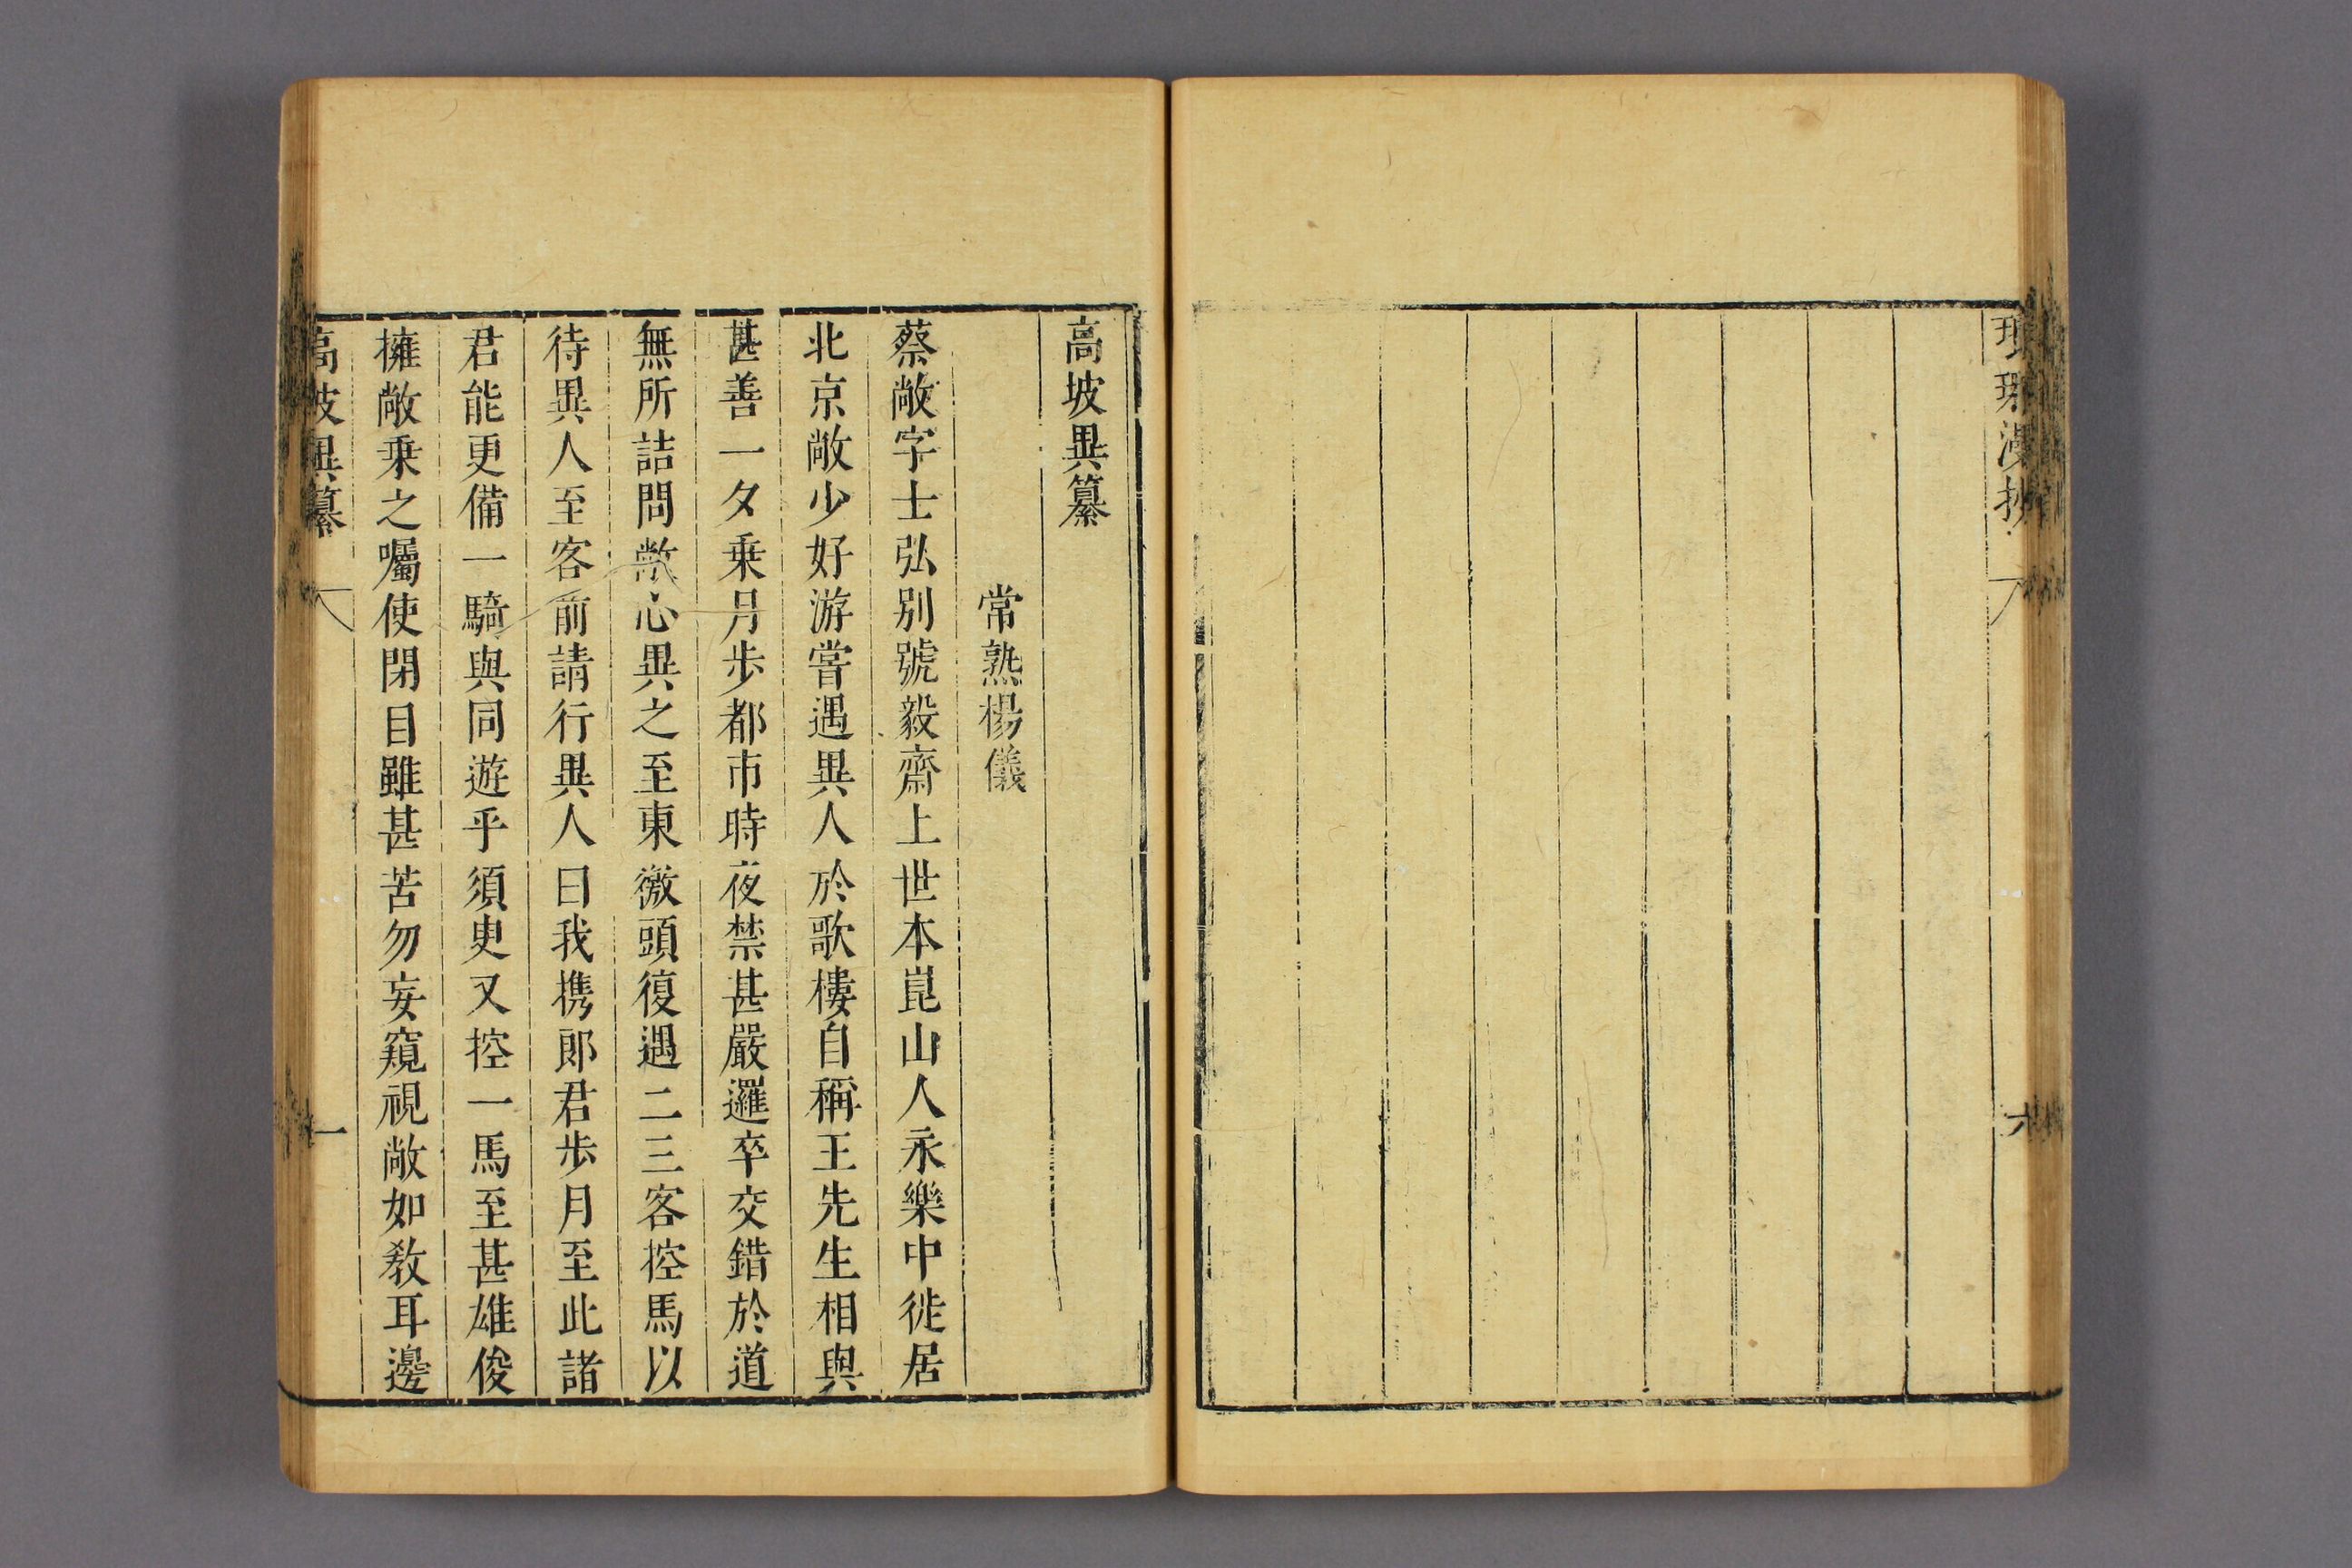 瑯琊漫抄
六
高坡異纂
常熟楊儀
蔡敞字士弘別號毅齋上世本崑山人永樂中徙居
北京敞少好游嘗遇異人於歌樓自稱王先生相與
甚善一夕乗月步都市時夜禁甚嚴邏卒交錯於道
無所詰問敞心異之至東徼頭復遇二三客控馬以
待異人至客前請行異人曰我携郎君步月至此諸
君能更備一騎與同遊乎須臾又控一馬至甚雄俊
擁敞乗之囑使閉目雖甚苦勿妄窺視敞如教耳邊
高坡異纂
一